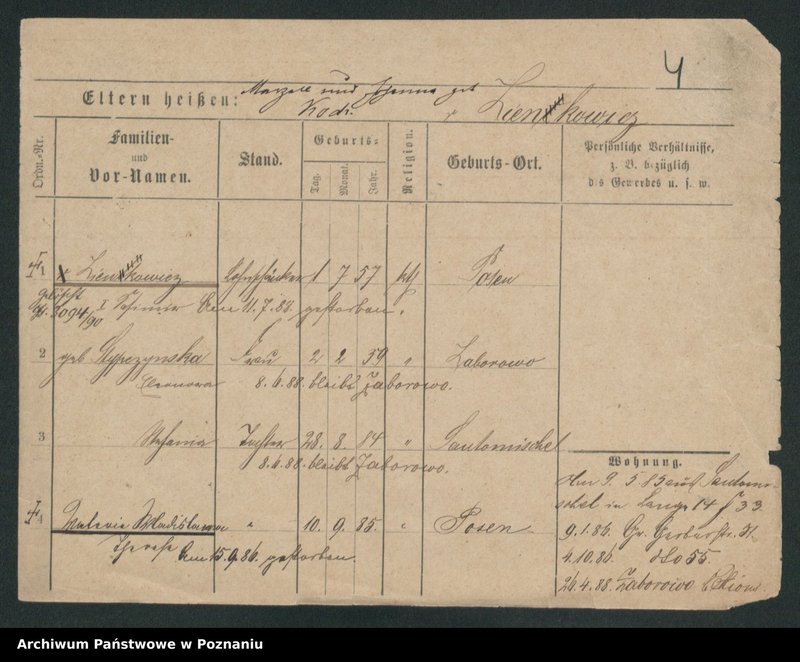 4
Eltern heißen: Marzell und Johanna geb
Kodr. Zienkowicz
Ordn.-Nr.
Familien-
und
Vor-Namen.
Stand.
Geburts-
Tag.
Monat.
Jahr.
Religion.
Geburts-Ort.
Persönliche Verhältnisse,
z. B. bezüglich
des Gewerbes u. s. w.
1 Zienkowicz 1 7 57 kth Posen
gelöscht
3094/90 I Am 11.7.88 gestorben.
2 geb Stypczynska Frau 2 2 59 " Zaborowo
Eleonora 8.6.88. bleibt Zaborowo.
3 Stefania Tochter 28. 8. 84 " Santomischel
8.6.88. bleibt Zaborowo.
4 Valerie Wladislawa " 10. 9. 85. " Posen
Therese Am 15.9.86. gestorben.
Wohnung.
Am 9. 5 85 aus Santomi-
schel in Lange 14
9.1.86. Gr. Gerberstr. 51.
4.10.86. dto 55.
26.4.88. Zaborowo
Archiwum Państwowe w Poznaniu